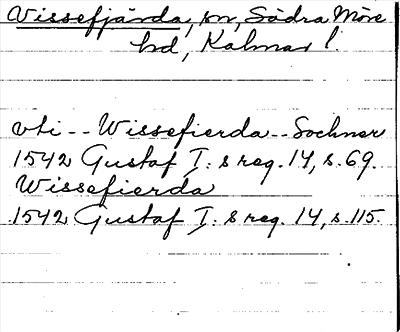 Vissefjärda, sn, Södra Möre
hd, Kalmar l.
vti -- Wissefierda -- Sochner
1542 Gustaf I:s reg. 14, s. 69.
Wissefierda
1542 Gustaf I:s reg. 14, s. 115.